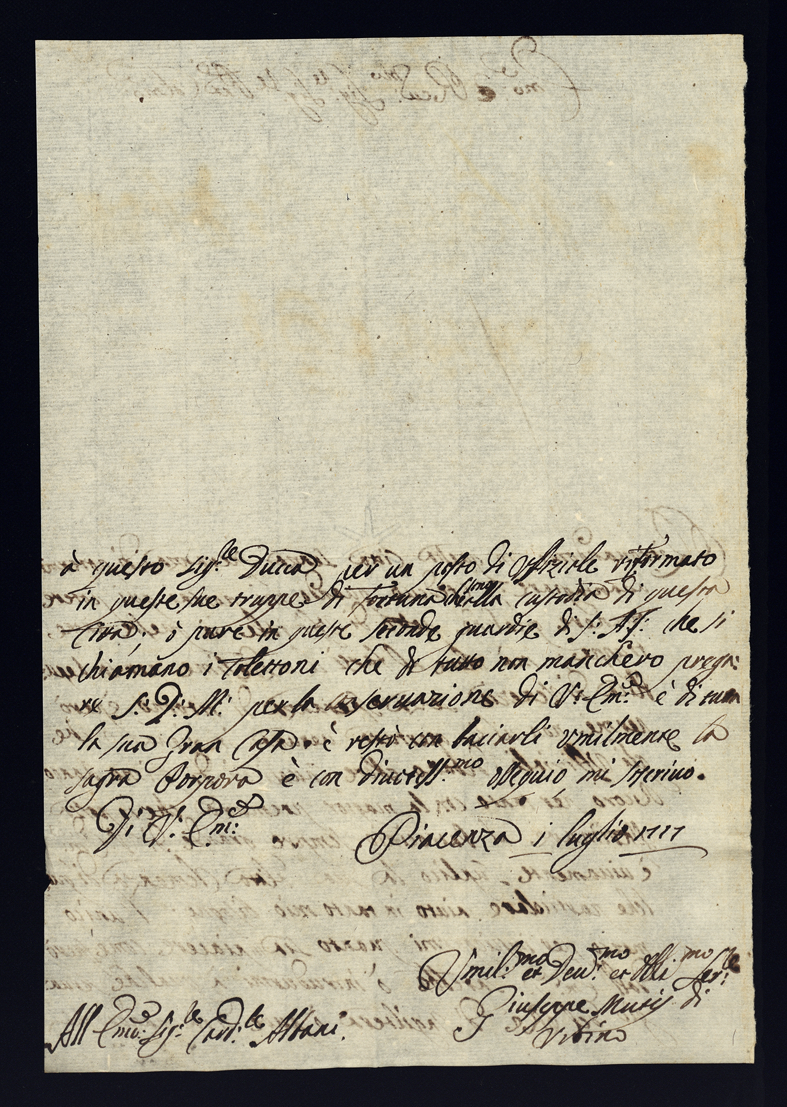 à questo Sig.re Ducca per un posto di Uffiziale rifformato
in queste sue truppe di fortuna alla custodia di questa
Città, ò pure in queste seconde guardie di S: A: che si
chiamano i Colettoni che di tutto non mancherò prega:
re S: D: M: per la conservazione di V: Em:za è di tutta
la sua gran casa. è resto con baciarli umilmente la
sagra Porpora è con ossequio mi soscrivo.
Di V: Em:za
Piacenza i luglio 1717
Umil:mo et Deu:mo et Obli:mo Ser:re
Giuseppe di
Urbino
All Em:o Sig:re Card:le Albani.